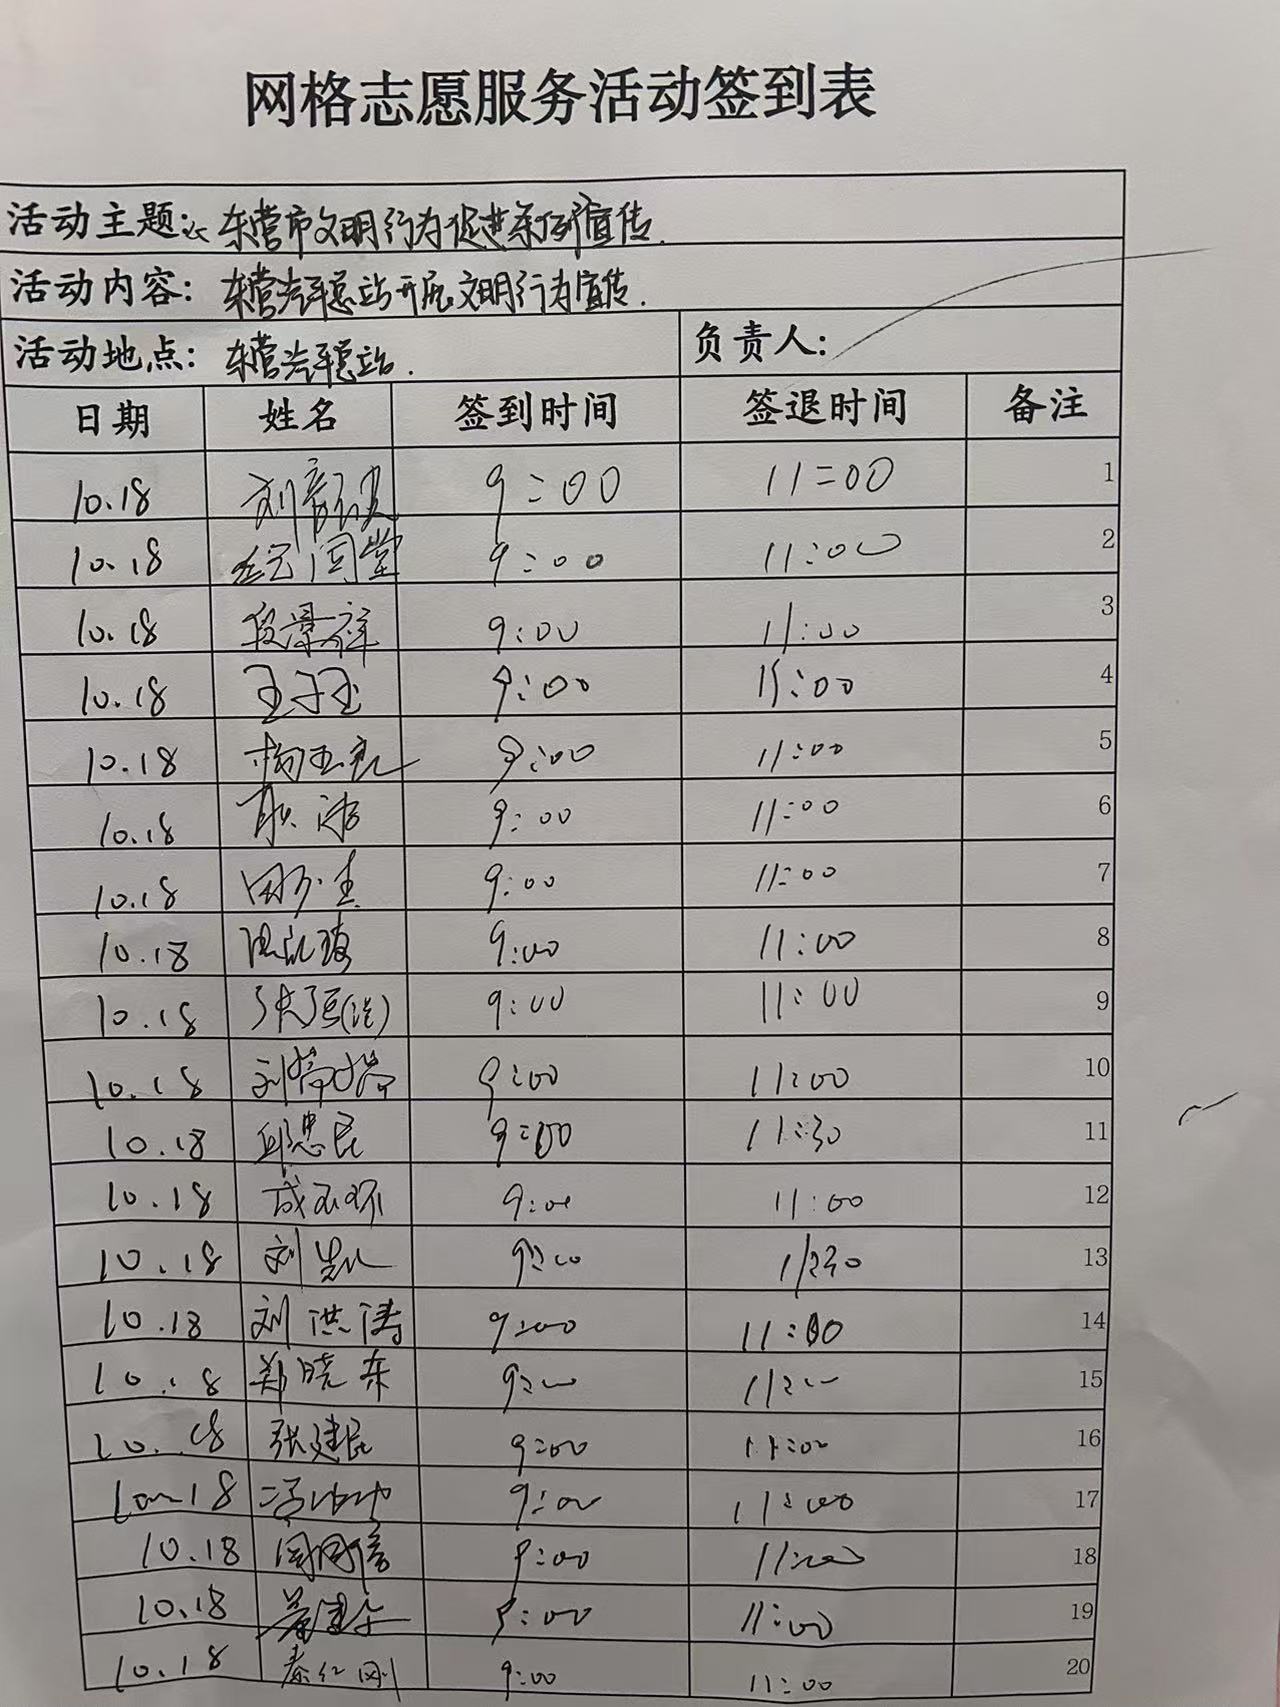 网格志愿服务活动签到表
活动主题: 东营市文明行为促进条例宣传.
活动内容: 东营汽车总站开展文明行为宣传.
活动地点: 东营汽车总站. 负责人:
日期 姓名 签到时间 签退时间 备注
10.18 9:00 11:00 1
10.18 9:00 11:00 2
10.18 段景祥 9:00 11:00 3
10.18 王子玉 9:00 11:00 4
10.18 9:00 11:00 5
10.18 耿涛 9:00 11:00 6
10.18 9:00 11:00 7
10.18 9:00 11:00 8
10.18 9:00 11:00 9
10.18 刘 9:00 11:00 10
10.18 邱忠民 9:00 11:30 11
10.18 9:00 11:00 12
10.18 刘凯 9:00 11:30 13
10.18 刘洪涛 9:00 11:00 14
10.18 郑晓东 9:00 11:00 15
10.18 张建民 9:00 11:00 16
10.18 9:00 11:00 17
10.18 9:00 11:00 18
10.18 9:00 11:00 19
10.18 9:00 11:00 20